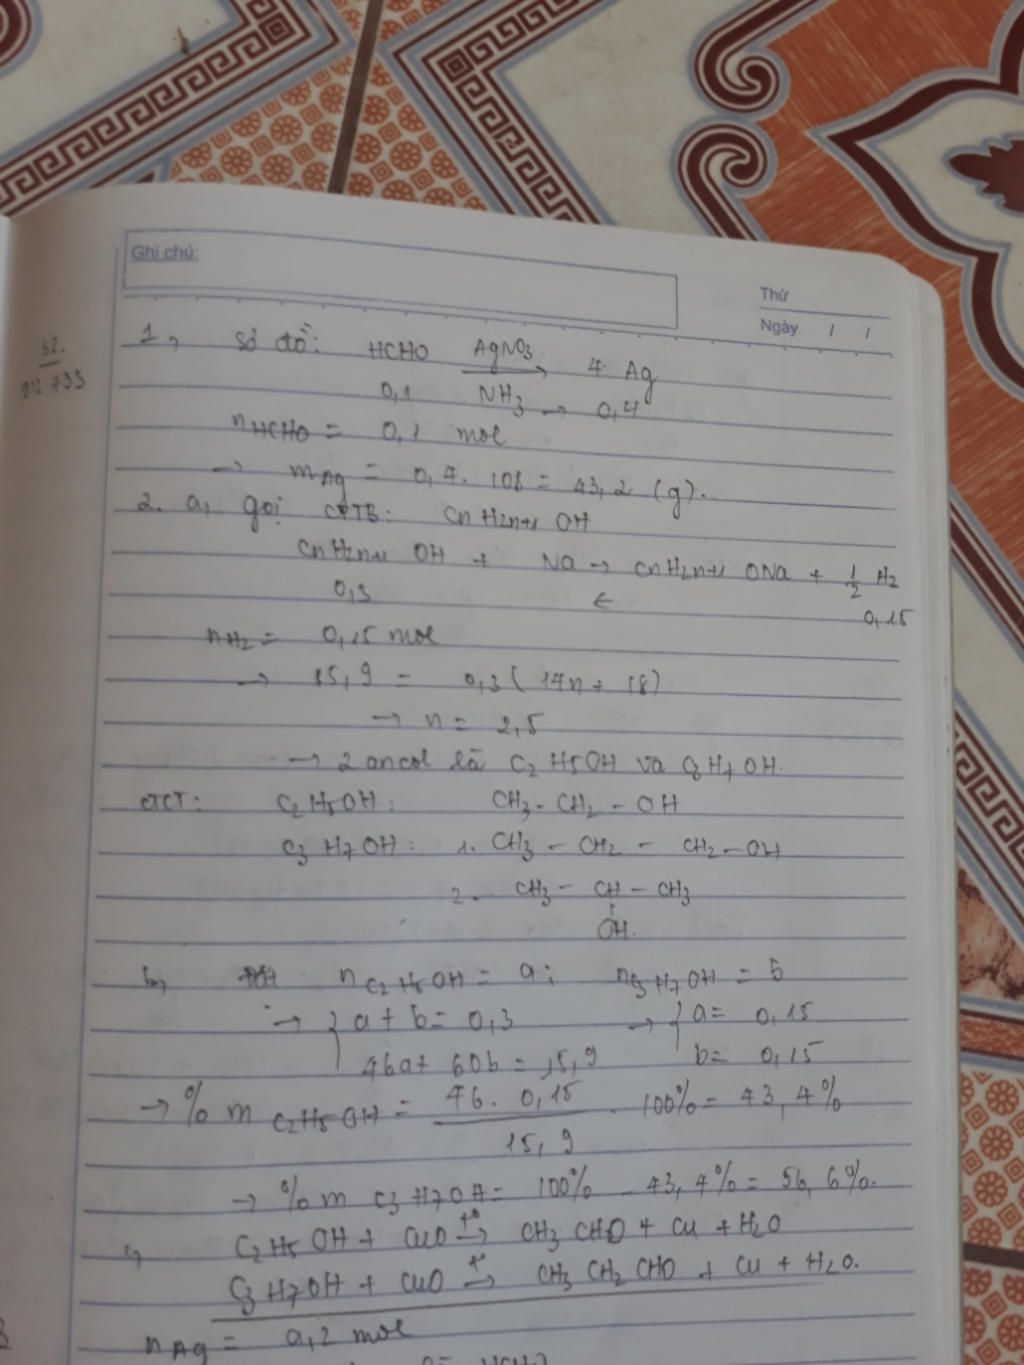 Ghi chú:
Thứ
Ngày / /
32.
012 733
1, Sơ đồ: HCHO AgNO3 → 4 Ag
0,1 NH3 → 0,4
nHCHO = 0,1 mol
→ mAg = 0,4. 108 = 43,2 (g).
2. a, gọi CTTB: CnH2n+1 OH
CnH2n+1 OH + Na → CnH2n+1 ONa + 1/2 H2
0,3 ← 0,15
nH2 = 0,15 mol
→ 15,9 = 0,3 ( 14n + 18)
→ n = 2,5
→ 2 ancol là C2H5OH và C3H7OH.
CTCT: C2H5OH: CH3 - CH2 - OH
C3H7OH: 1. CH3 - CH2 - CH2 - OH
2. CH3 - CH - CH3
OH.
b, nC2H5OH = a; nC3H7OH = b
→ { a + b = 0,3 → { a = 0,15
46a + 60b = 15,9 b = 0,15
→ % m C2H5OH = 46. 0,15 / 15,9 . 100% = 43,4%
→ % m C3H7OH = 100% - 43,4% = 56,6%.
C2H5OH + CuO t° → CH3CHO + Cu + H2O
C3H7OH + CuO t° → CH3CH2CHO + Cu + H2O.
nAg = 0,2 mol